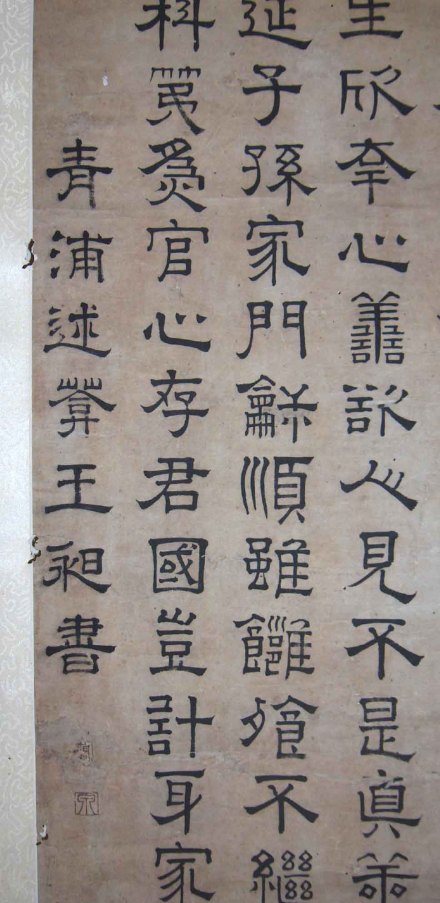 生欣幸心譱欲人見不是真善
延子孫家門龢順雖饔飱不繼
科第爲官心存君國豈計身家
青浦述葊王昶書